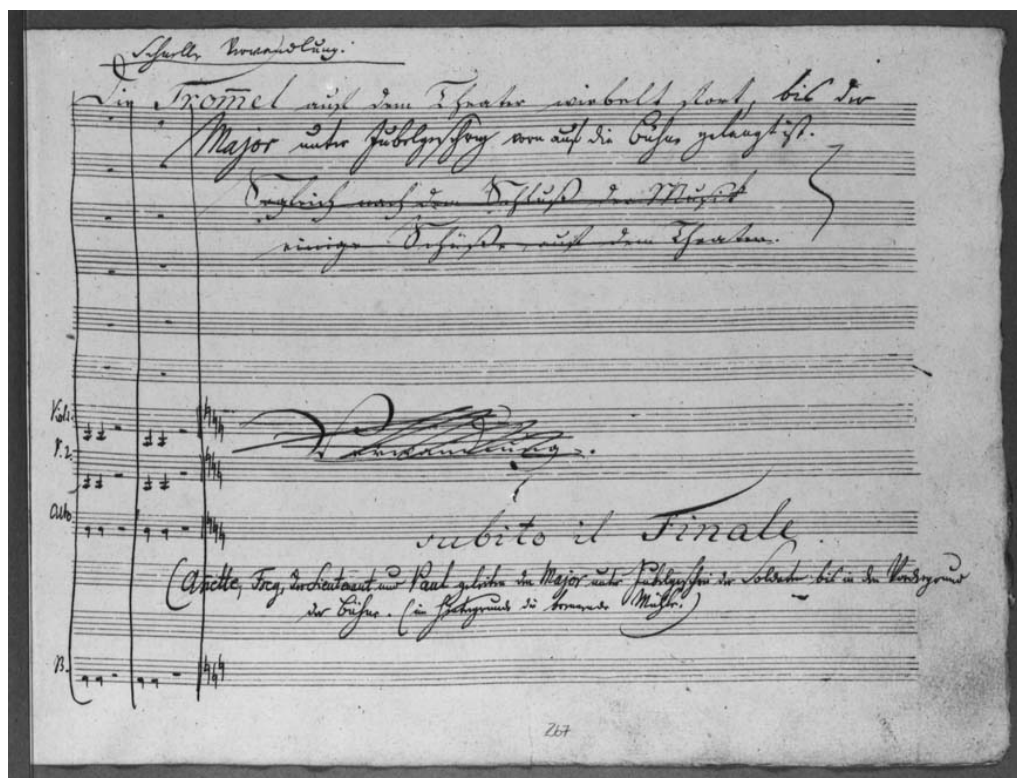 Schnelle Verwandlung.
Die Trom̄el auf dem Theater wirbelt fort, bis der
Major unter Jubelgeschrey vorn auf die Bühne gelangt ist.
Sogleich nach dem Schluß der Musik
einige Schüße auf dem Theater.
Viol:
V. 2.
Verwandlung.
Alto
subito il Finale.
(Anette, Frey, der Lieutenant und Paul geleiten den Major unter Jubelgeschrei der Soldaten bis in den Vordergrund
der Bühne. (im Hintergrunde die brennende Mühle.)
B.
267